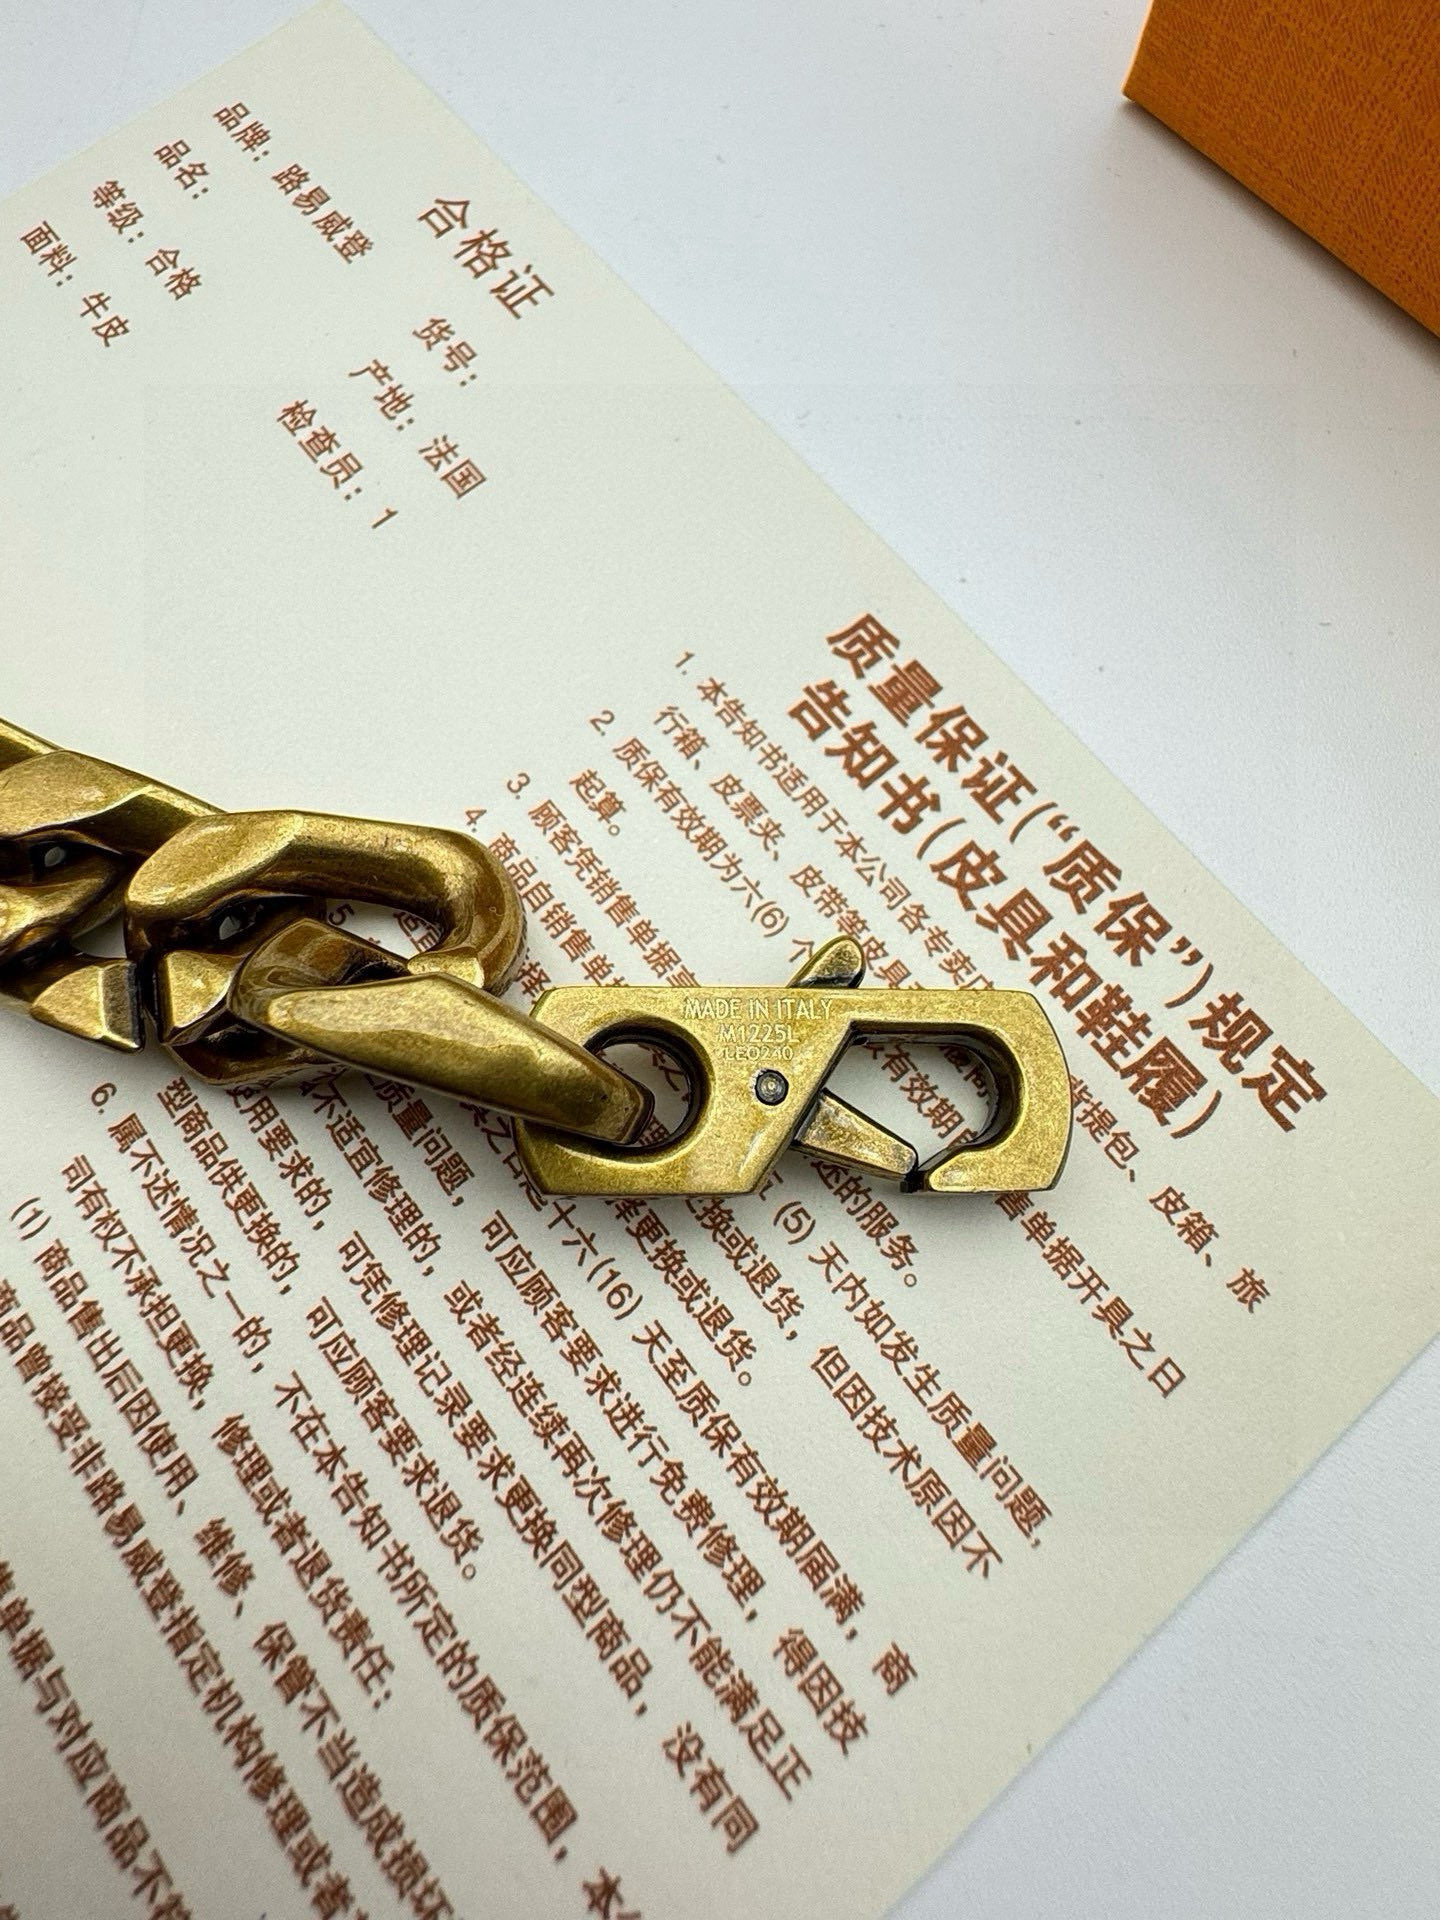 合格证
品牌：路易威登
货号：
品名：
产地：法国
等级：合格
检查员：1
面料：牛皮
质量保证(“质保”)规定
告知书(皮具和鞋履)
1. 本告知书适用于本公司各专卖
背提包、皮箱、旅
行箱、皮票夹、皮带等皮具
2. 质保有效期为六(6) 个
售单据开具之日
起算。
3. 顾客凭销售单据享
有效期
述的服务。
4. 商品自销售单据
(5) 天内如发生质量问题，
择更换或退货。
5
适宜
换或退货，但因技术原因不
之日起十六(16) 天至质保有效期届满，商
质量问题，可应顾客要求进行免费修理，得因技
不适宜修理的，或者经连续再次修理仍不能满足正
使用要求的，可凭修理记录要求更换同型商品，没有同
型商品供更换的，可应顾客要求退货。
6. 属不述情况之一的，不在本告知书所定的质保范围，本
司有权不承担更换，修理或者退货责任：
(1) 商品售出后因使用、维修、保管不当造成损坏
商品曾接受非路易威登指定机构修理或者
售单据与对应商品不
MADE IN ITALY
M1225L
LE0240